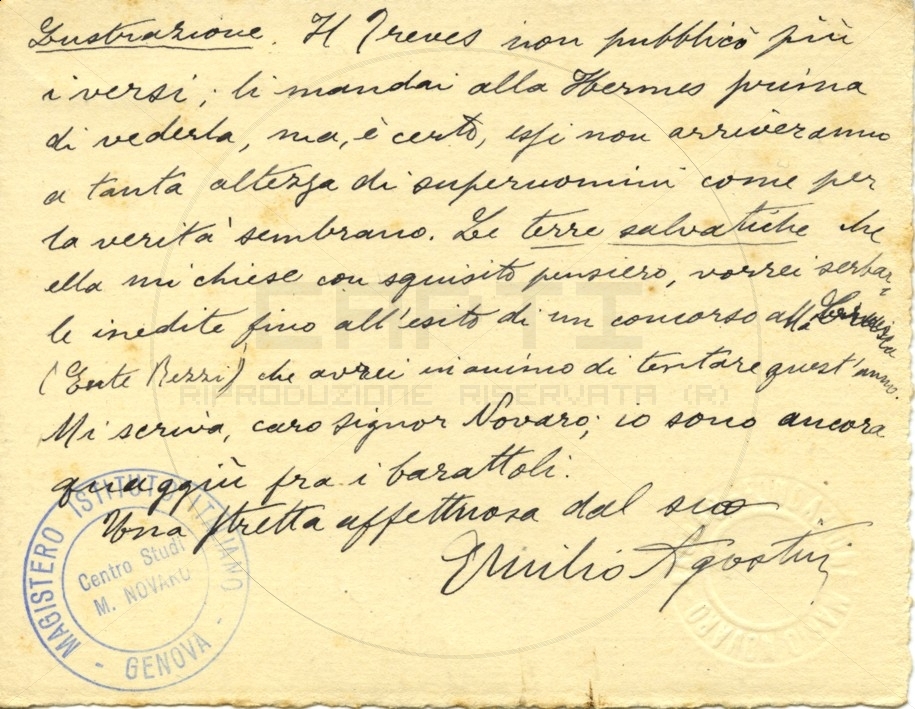 Lustrazione. Il Treves non pubblicò più
i versi; li mandai alla Hermes prima
di vederla, ma, è certo, essi non arriveranno
a tanta altezza di superuomini come per
la verità sembrano. Le terre salvatiche che
ella mi chiese con squisito pensiero, vorrei serbar-
le inedite fino all'esito di un concorso alla
(Ente Rezzi) che avrei in animo di tentare quest'anno.
Mi scriva, caro Signor Novaro; io sono ancora
quaggiù fra i barattoli.
Una stretta affettuosa dal suo
Emilio Agostini
MAGISTERO ISTITUTO ITALIANO
Centro Studi
M. NOVARO
- GENOVA -
CARTI
RIPRODUZIONE RISERVATA (R)